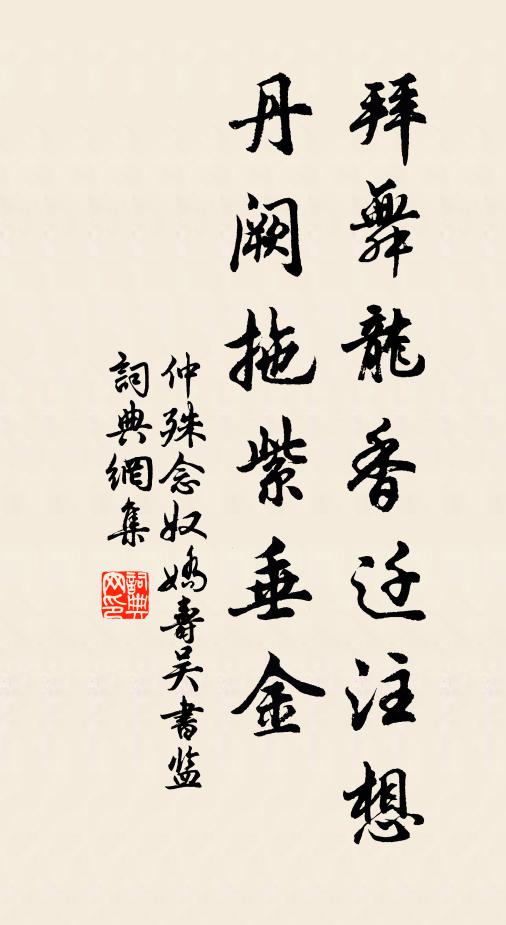 拜舞龍香迁注想
丹闕拖紫垂金
仲殊念奴嬌壽吴書监
詞典網集
詞典
网印